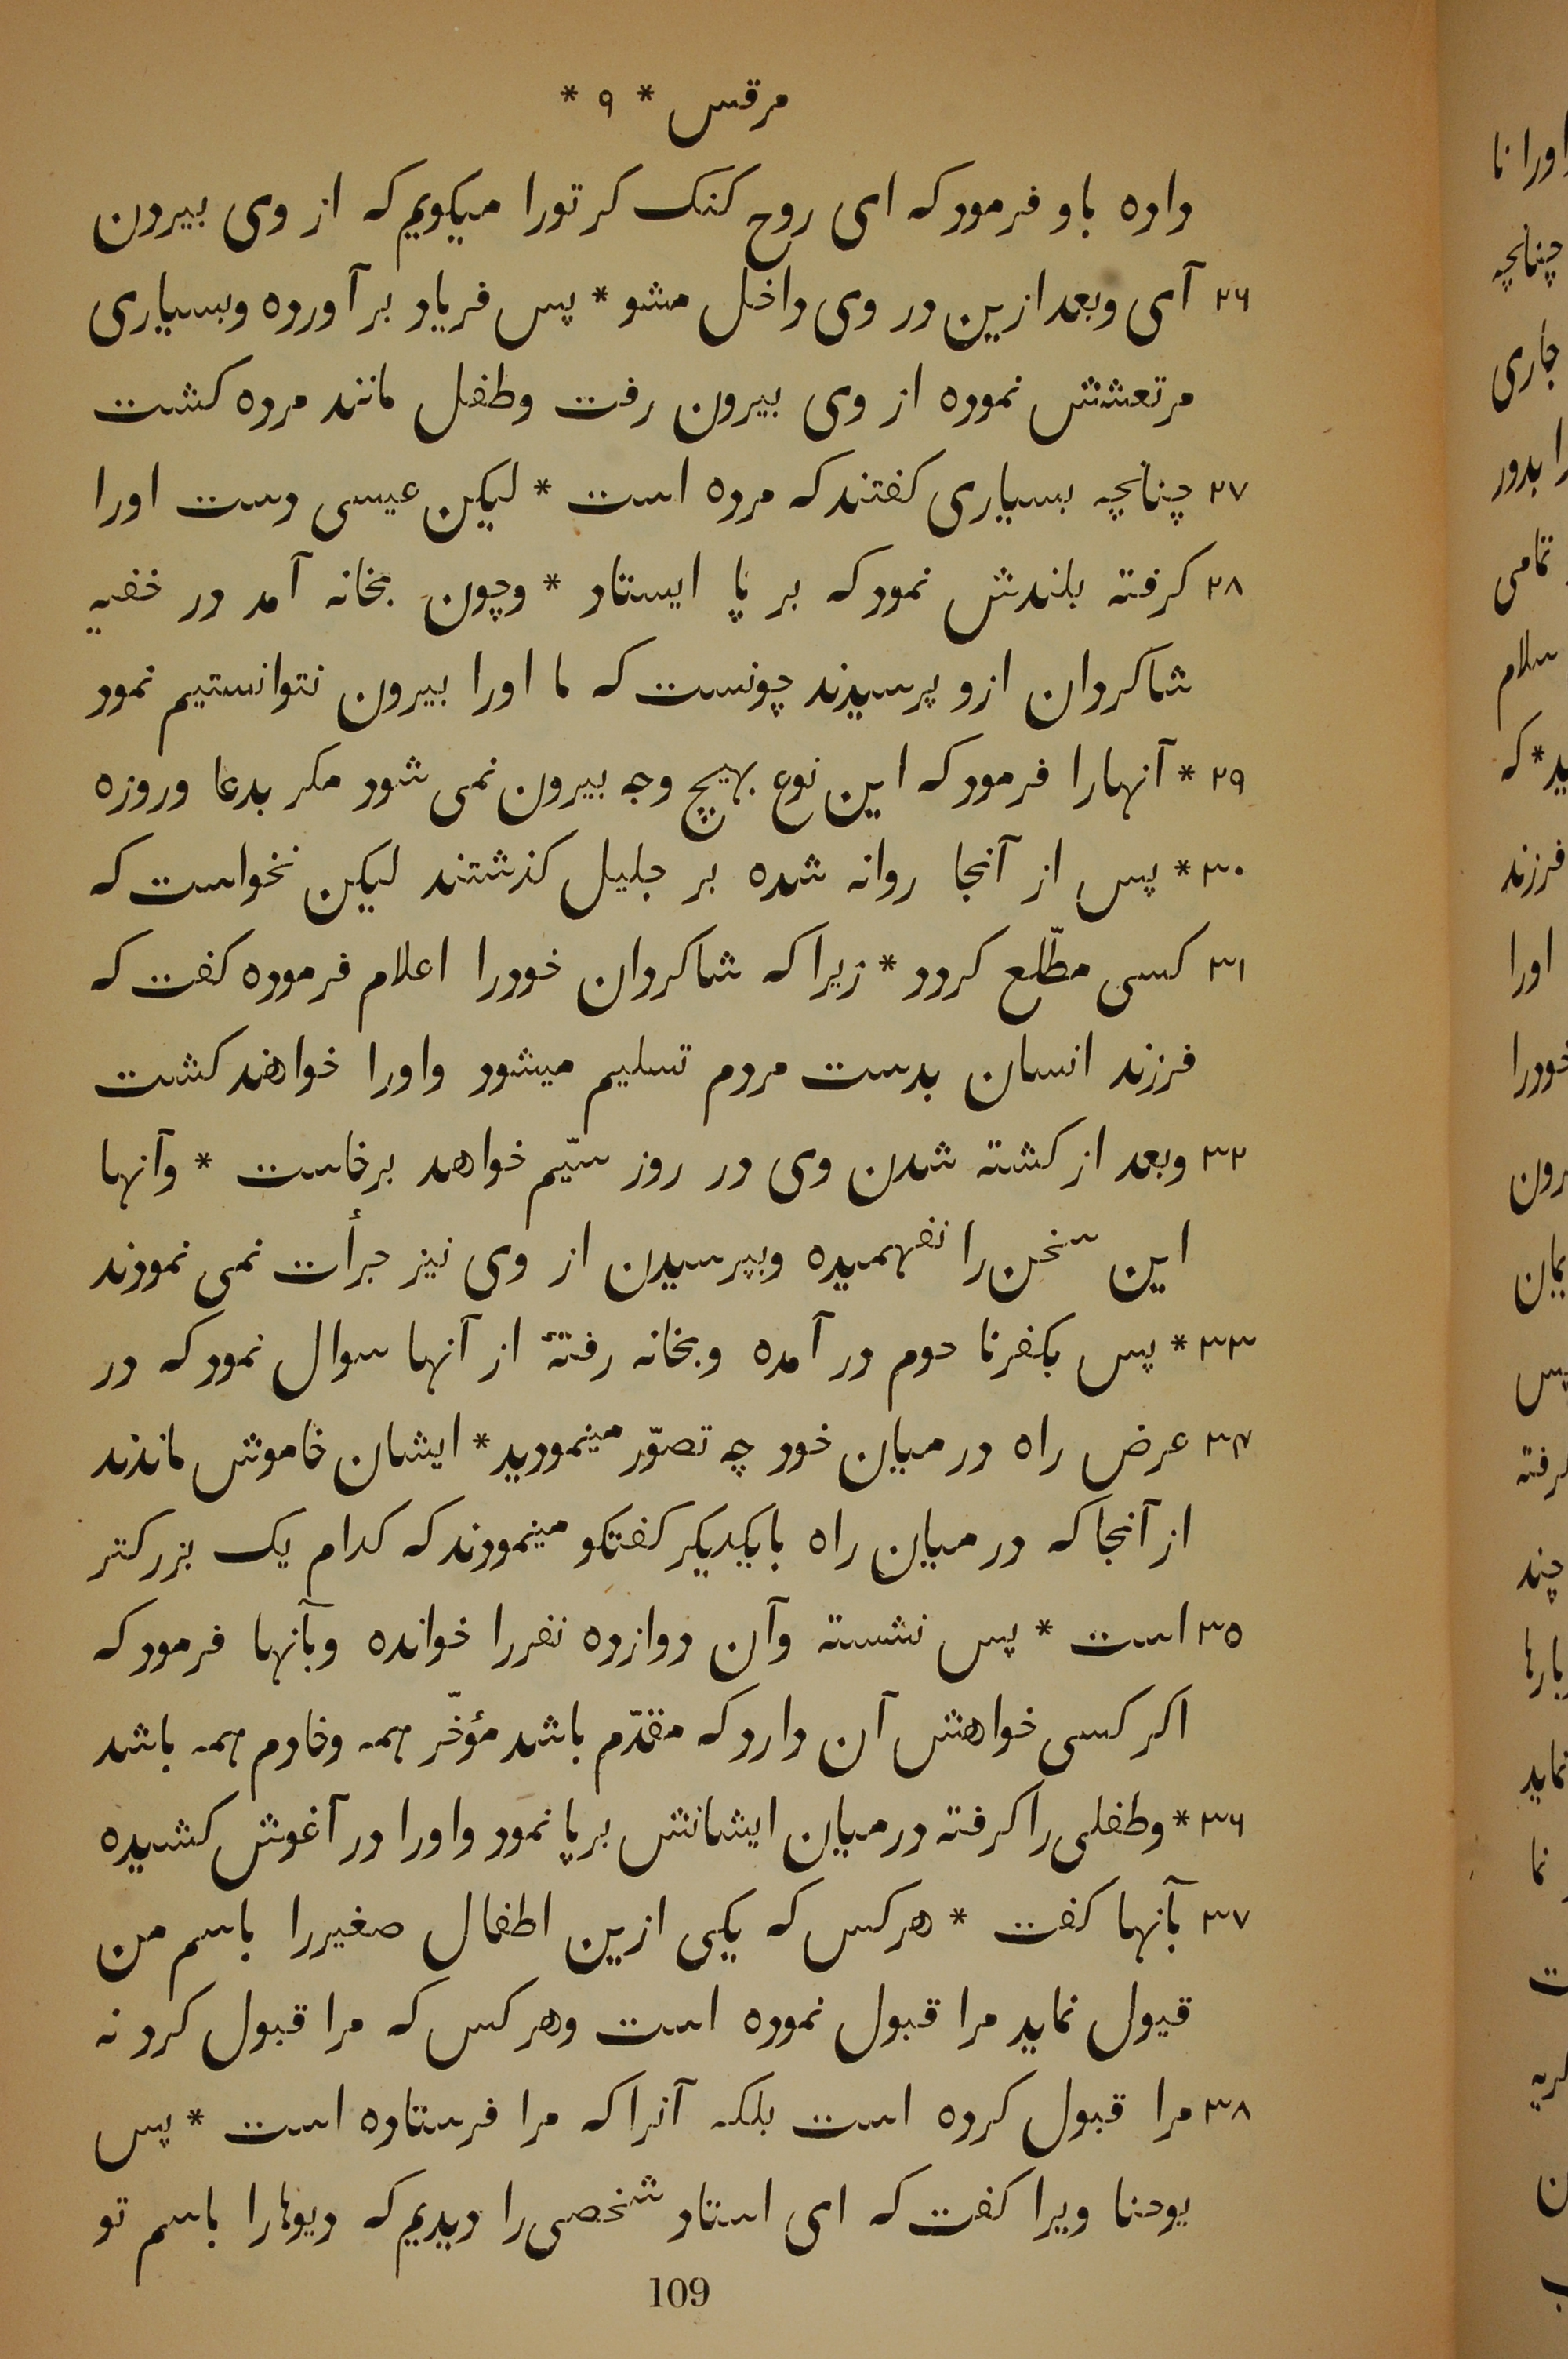 مرقس * ۹ *
داده باو فرمود که ای روح کنک کر تورا میکویم که از وی بیرون
۲۶ آی وبعد ازین در وی داخل مشو * پس فریاد بر آورده وبسیاری
مرتعشش نموده از وی بیرون رفت وطفل مانند مرده کشت
۲۷ چنانچه بسیاری کفتند که مرده است * لیکن عیسی دست اورا
۲۸ کرفته بلندش نمود که بر پا ایستاد * وچون بخانه آمد در خفیه
شاکردان ازو پرسیدند چونست که ما اورا بیرون نتوانستیم نمود
۲۹ * آنهارا فرمود که این نوع بهیچ وجه بیرون نمی شود مکر بدعا وروزه
۳۰ * پس از آنجا روانه شده بر جلیل کذشتند لیکن نخواست که
۳۱ کسی مطّلع کردد * زیرا که شاکردان خودرا اعلام فرموده کفت که
فرزند انسان بدست مردم تسلیم میشود واورا خواهند کشت
۳۲ وبعد از کشته شدن وی در روز سیّم خواهد برخاست * وآنها
این سخن را نفهمیده وبپرسیدن از وی نیز جرأت نمی نمودند
۳۳ * پس بکفرنا حوم در آمده وبخانه رفتهٔ از آنها سوال نمود که در
۳۴ عرض راه در میان خود چه تصوّر مینمودید * ایشان خاموش ماندند
از آنجا که در میان راه بایکدیکر کفتکو مینمودند که کدام یک بزرکتر
۳۵ است * پس نشسته وآن دوازده نفررا خوانده وبآنها فرمود که
اکر کسی خواهش آن دارد که مقدّم باشد مؤخّر همه وخادم همه باشد
۳۶ * وطفلی را کرفته در میان ایشانش برپا نمود واورا در آغوش کشیده
۳۷ بآنها کفت * هر کس که یکی ازین اطفال صغیررا باسم من
قیول نماید مرا قبول نموده است وهر کس که مرا قبول کرد نه
۳۸ مرا قبول کرده است بلکه آنرا که مرا فرستاده است * پس
یوحنا ویرا کفت که ای استاد شخصی را دیدیم که دیوهارا باسم تو
109